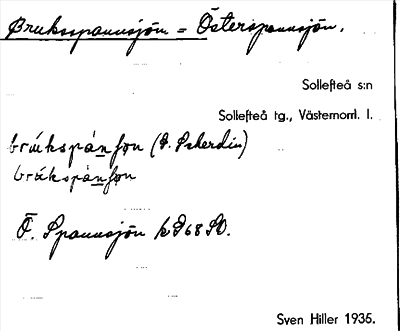 Bruksspannsjön = Österspannsjön.
Sollefteå s:n
Sollefteå tg., Västernorrl. l.
brúkspánʃøn
brúkspánʃøn
Ö. Spannsjön k 968 SO.
Sven Hiller 1935.